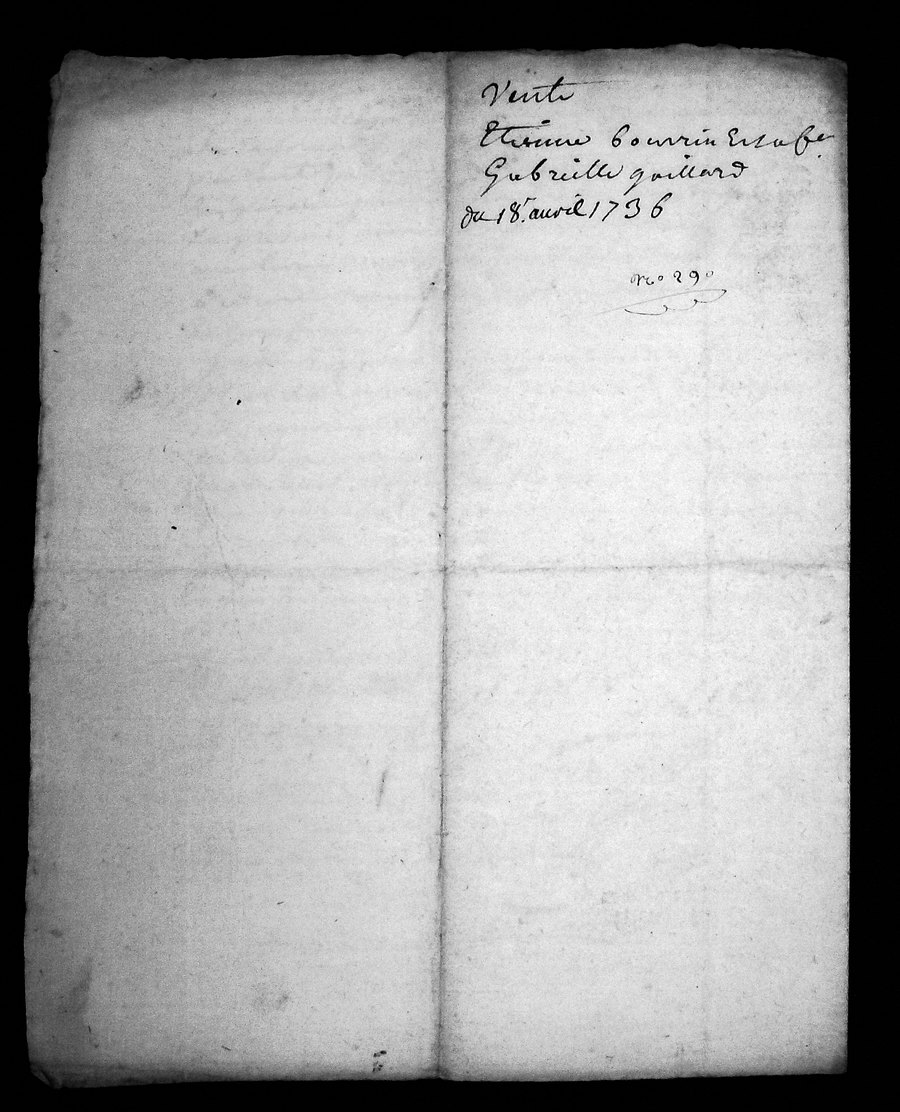 Vente
Etienne bourrin Et sa fe
Gabrielle gaillard
du 18e. avril 1736
No 29o